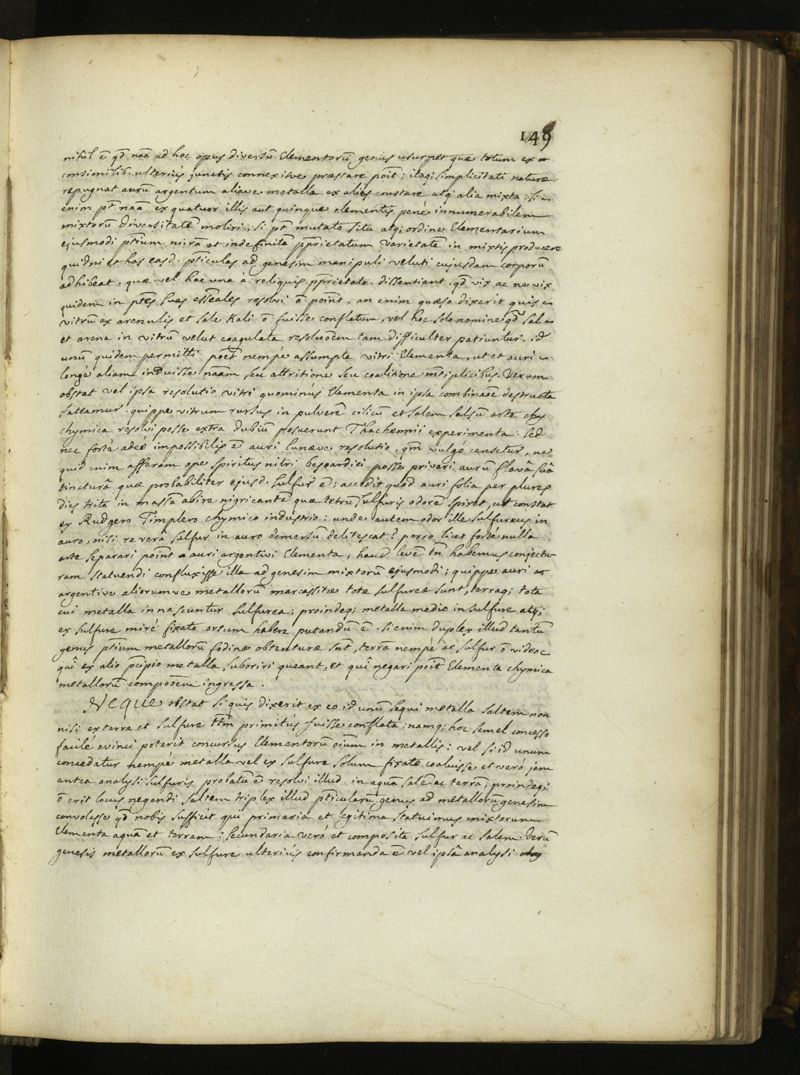 149
nihil ē qd naā ad hoc opus diversū Elementorū genus usurpet quæ totum ex
consimilib. ulterius junctis connexisve præstare pōit; itaq; simplicitati naturæ
repugnat aurū argentum aliave metalla ex aliis constare atq; alia mixta. Si
enim pt naā ex quatuor illis aut quinque elementis penè innumerabilem
mixtorū diversitatē moliri, si pt mutato situ atq; ordine Elementarium
ejusmodi ptium mirā et indefinitā pprietatum varietatē in mixtis producere
quidni et has easd. pticulas ad genesim manipuli veluti cujusdam corporū
adhibeat, quæ vel hac una a reliquis pprietate dissentiant qd vix ac ne vix
quidem in ptes suas essēales resolvi ō pōint. an enim quæso dixerit quis
vitrū ex arenulis et sale Kali ō fuisse conflatum, vel hoc solo nomine qd sal
et arena in vitrū velut coagulata resoluōem tam difficulter patiuntur. id
unū quidem permitti poēt nempè assumpta vitri Elementa, ut et auri
longè aliam induisse naām seu attritione seu coalitione mtiplicibus. Verum
obstat vel ipsa resolutio vitri quominùs Elementa in ipsa combinaōe destructa
fateamur. quippe vitrum rursus in pulverē cilicū et salem salsū arte
chymica resolvi posse extra dubiū posuerunt Thachennii experimenta: sed
nec fortè adeò impossibilis ē auri lunæve resolutio, qm vulgo censetur, ne
quid enim afferam ope spiritus nitri bezoardici posse privari aurū flavâ suâ
tincturâ quæ probabiliter ejusd. sulfur ē; accedit quod auri folia per plures
dies trita in massā abire nigricantē quæ tetrū sulfuris odorē spiret, ut constat
ex Rudgero Timplero chymico industrio: unde autem odor ille sulfureus in
auro, nisi reverâ sulfur in auro demersū delitescat? porro licet fortè nulla
arte separari pōint a auri argentivi Elementa, haud leve tn habemus conjectu
ram statuendi confluxisse illa ad genesim mixtorū ejusmodi; quippe auri ac
argentive aliorumve metallorū marcassitæ totæ sulfureæ sunt, terraq; tota
cui metalla innascuntur sulfurea; proindeq; metalla medio in sulfure atq;
ex sulfure mirè fixato ortum habere putandū ē. si enim duplex illud tantū
genus ptium metallorū fodinæ obtenturæ sūt, terra nempè ac sulfur ō video
quî ex alio pcipio metalla suboriri queant, et qui negari pōit Elementa chymica
metallorū compoōem ingressa.
Neque obstat si quis dixerit ex eo id unū sequi metalla saltem non
nisi ex terra et sulfure ttm primitus fuisse conflata; namq; hoc semel concesso
facilè evinci poterit concursus Elementorū oium in metallis: vel si id unum
concedatur nempè metalla vel ex sulfure solum fixato coaluisse et verò jam
antea analysi sulfuris probatū ē resolvi illud in aquā salē ac terrā, proindeq;
ō erit locus negandi saltem triplex illud pticularū genus ad metallorū genesim
convolasse qd nobis sufficit qui primaria et legitima statuimus mixtorum
Elementa aquā et terram: secundaria verò et composita sulfur ac salem. Verū
genesis metallorū ex sulfure ulteriùs confirmanda ē vel ipsâ analysi